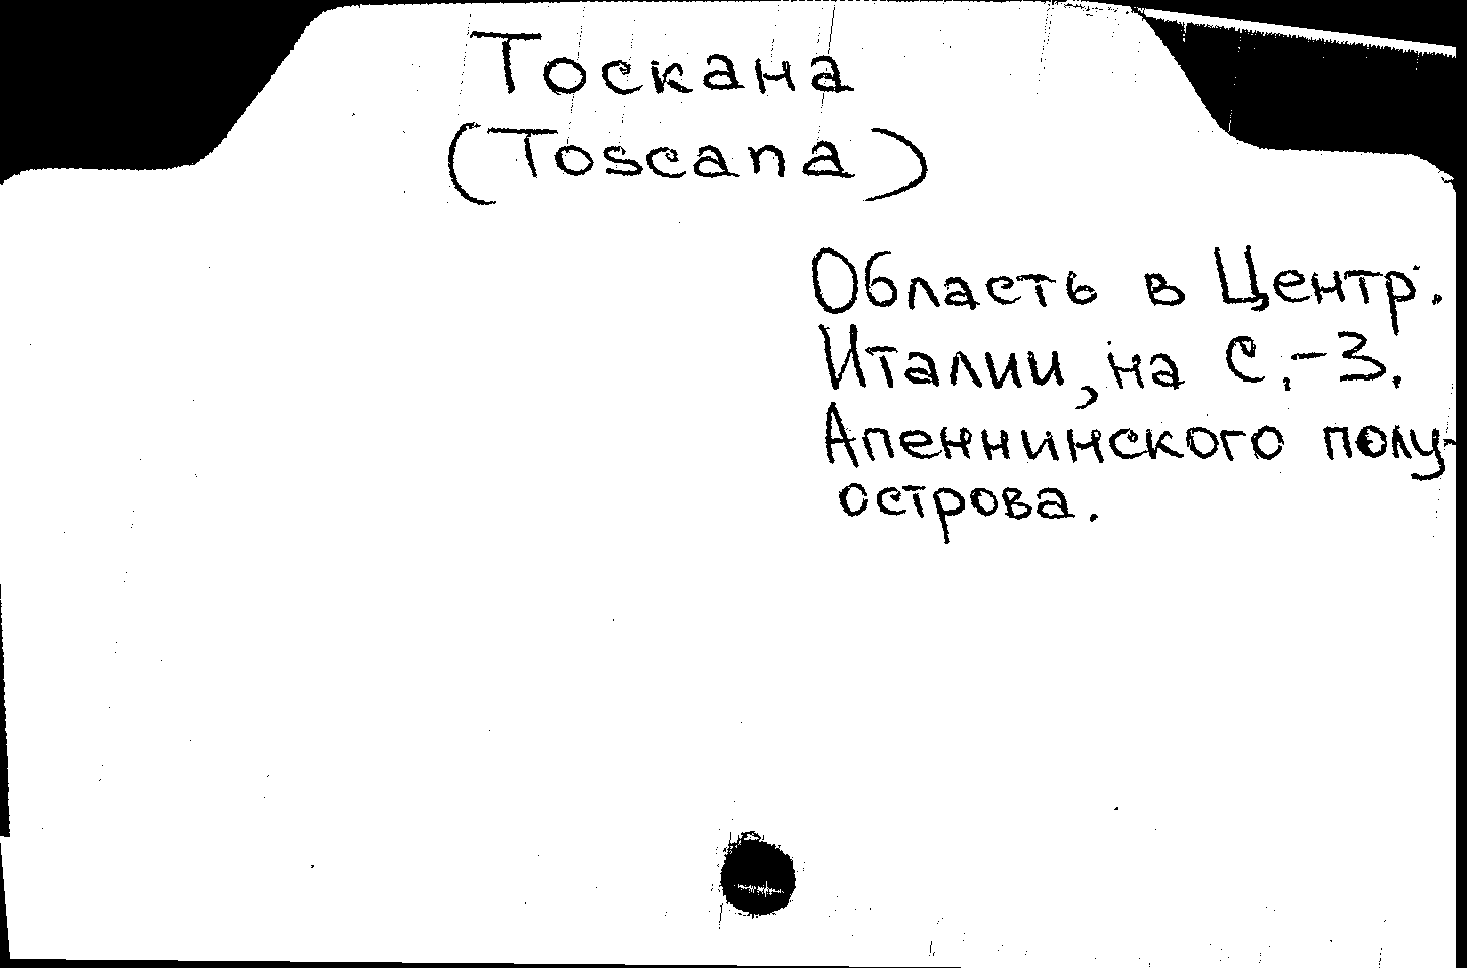 Тоскана
(Toscana)
Область в Центр.
Италии, на С.-З.
Апеннинского полу-
острова.